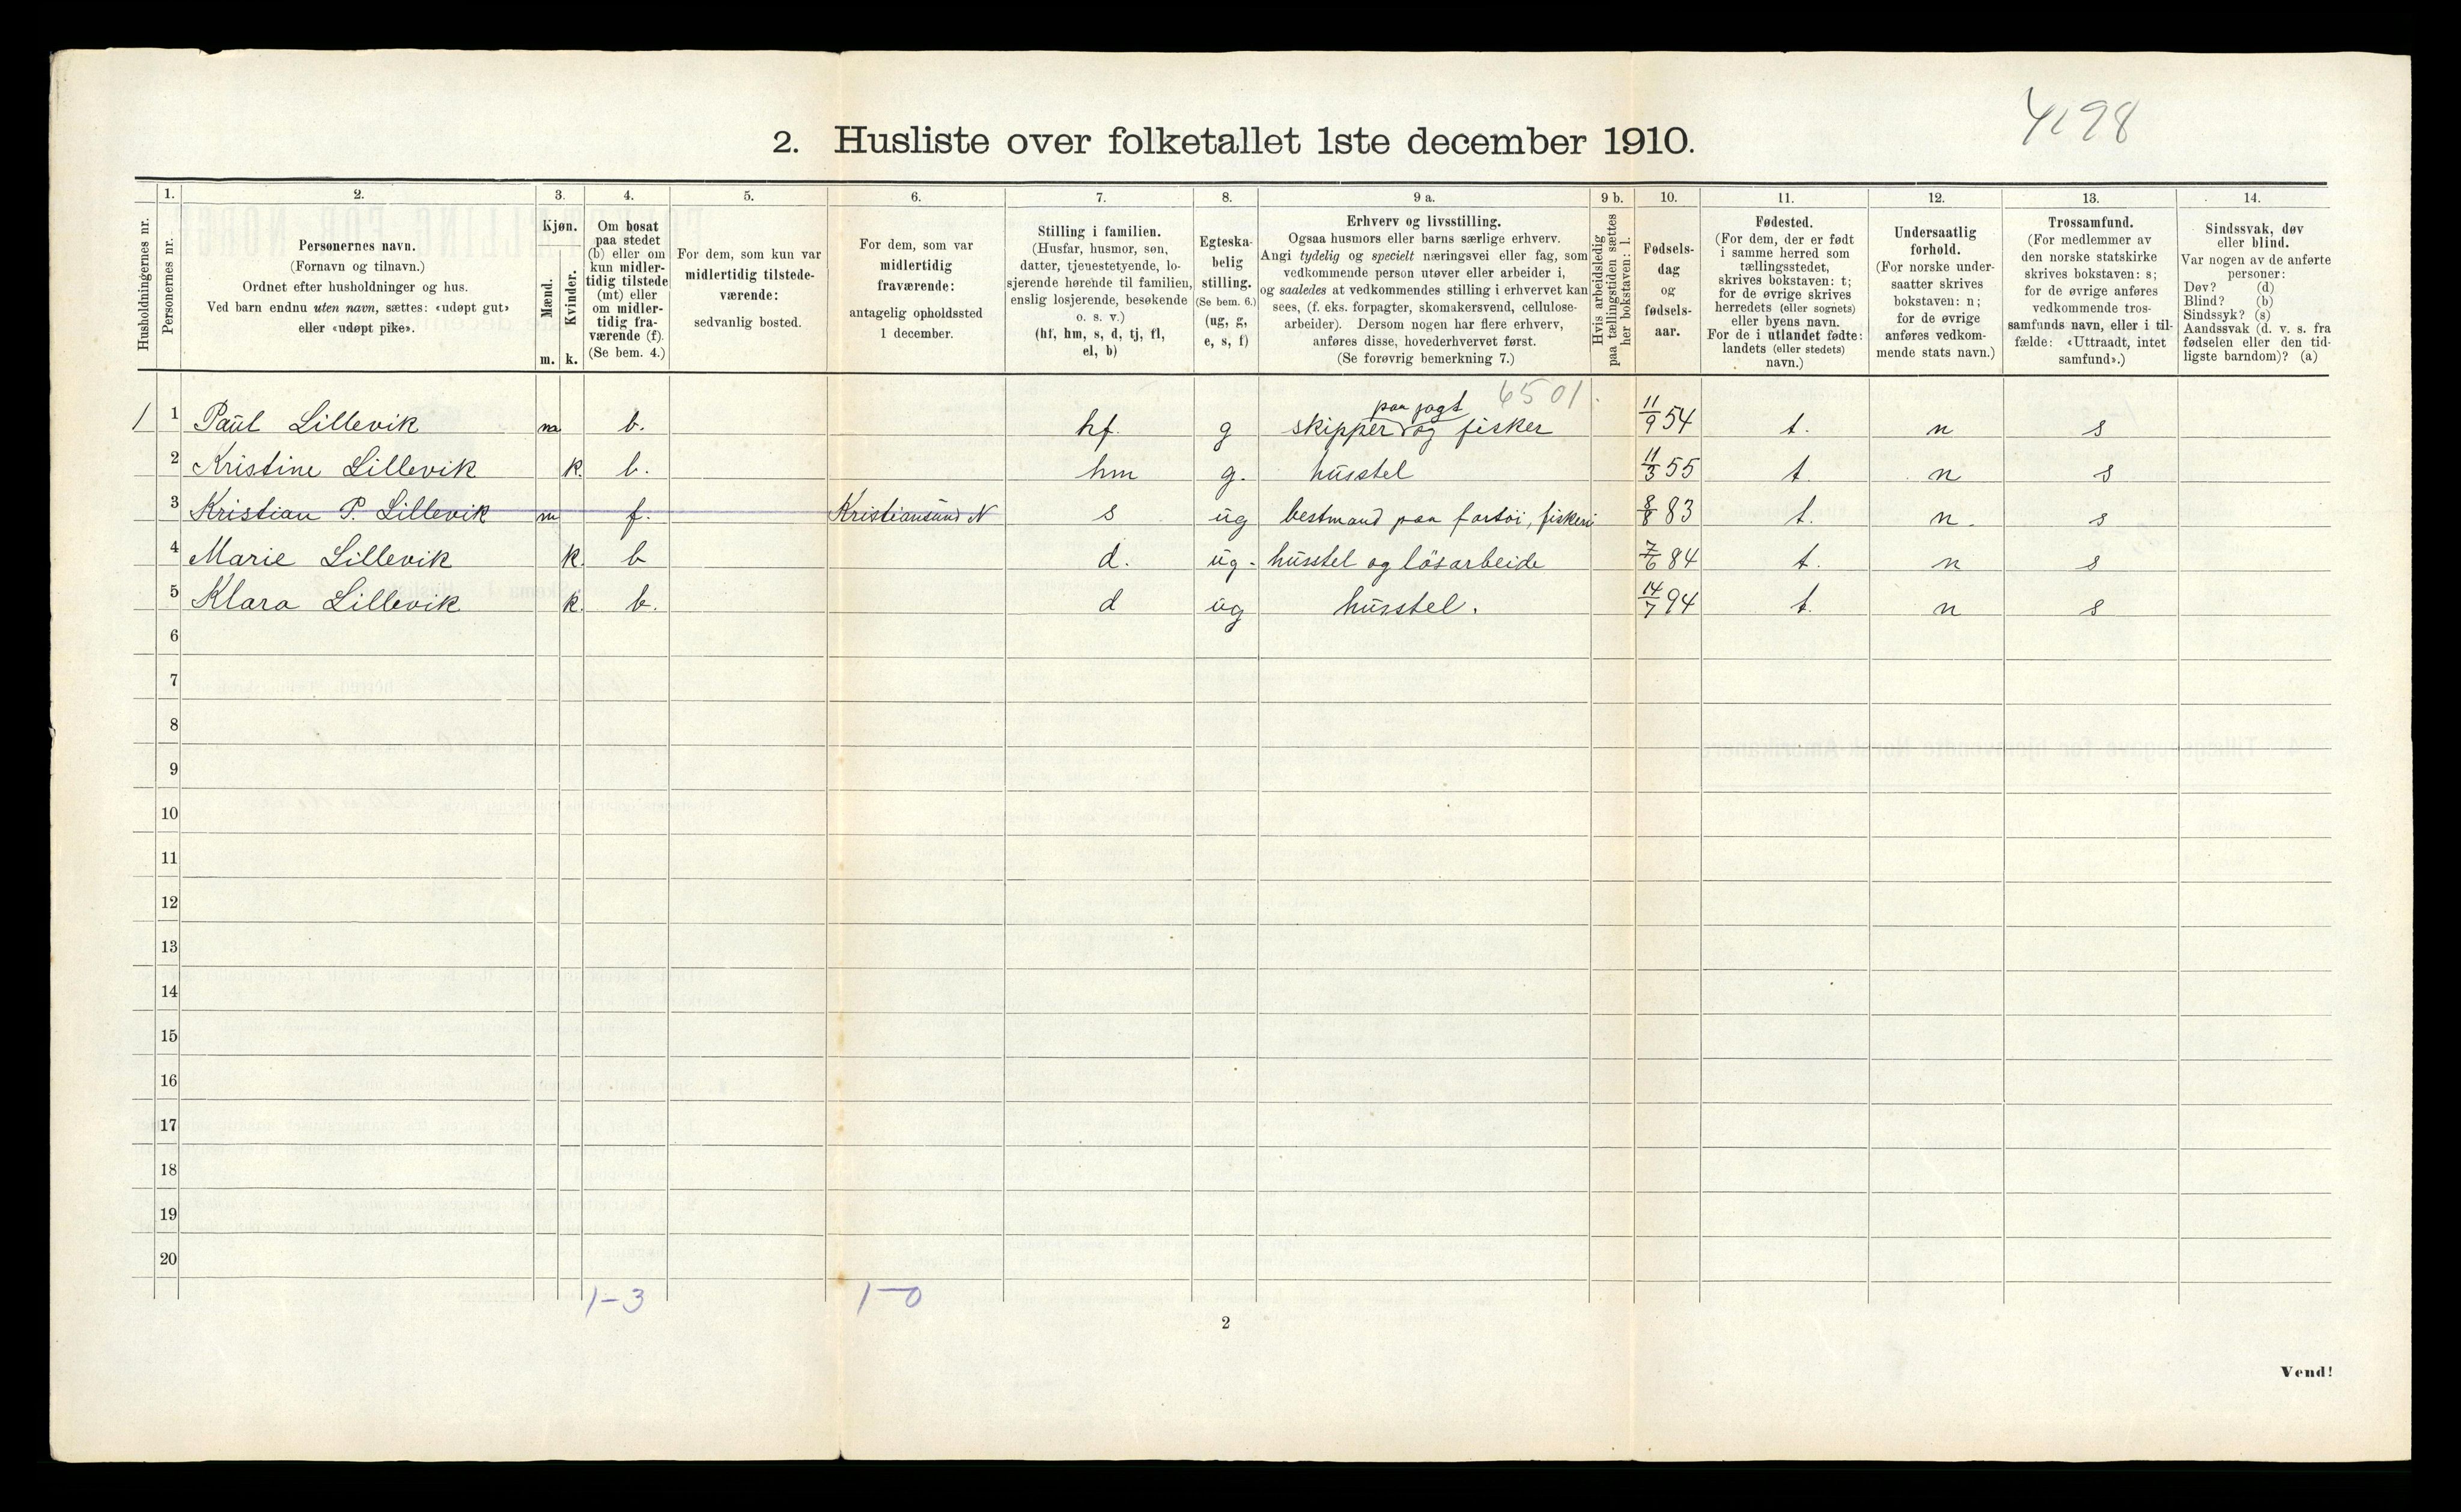 4198
2. Husliste over folketallet 1ste december 1910.
Husholdningernes nr.
1.
Personernes nr.
2.
Personernes navn.
(Fornavn og tilnavn.)
Ordnet efter husholdninger og hus.
Ved barn endnu uten navn, sættes: «udøpt gut»
eller «udøpt pike».
3.
Kjøn.
Mænd.
Kvinder.
m. k.
4.
Om bosat
paa stedet
(b) eller om
kun midler-
tidig tilstede
(mt) eller
om midler-
tidig fra-
værende (f).
(Se bem. 4.)
5.
For dem, som kun var
midlertidig tilstede-
værende:
sedvanlig bosted.
6.
For dem, som var
midlertidig
fraværende:
antagelig opholdssted
1 december.
7.
Stilling i familien.
(Husfar, husmor, søn,
datter, tjenestetyende, lo-
sjerende hørende til familien,
enslig losjerende, besøkende
o. s. v.)
(hf, hm, s, d, tj, fl,
el, b)
8.
Egteska-
belig
stilling.
(Se bem. 6.)
(ug, g,
e, s, f)
9 a.
Erhverv og livsstilling.
Ogsaa husmors eller barns særlige erhverv.
Angi tydelig og specielt næringsvei eller fag, som
vedkommende person utøver eller arbeider i,
og saaledes at vedkommendes stilling i erhvervet kan
sees, (f. eks. forpagter, skomakersvend, cellulose-
arbeider). Dersom nogen har flere erhverv,
anføres disse, hovederhvervet først.
(Se forøvrig bemerkning 7.)
9 b.
Hvis arbeidsledig
paa tællingstiden sættes
her bokstaven: l.
10.
Fødsels-
dag
og
fødsels-
aar.
11.
Fødested.
(For dem, der er født
i samme herred som
tællingsstedet,
skrives bokstaven: t;
for de øvrige skrives
herredets (eller sognets)
eller byens navn.
For de i utlandet fødte:
landets (eller stedets)
navn.)
12.
Undersaatlig
forhold.
(For norske under-
saatter skrives
bokstaven: n;
for de øvrige
anføres vedkom-
mende stats navn.)
13.
Trossamfund.
(For medlemmer av
den norske statskirke
skrives bokstaven: s;
for de øvrige anføres
vedkommende tros-
samfunds navn, eller i til-
fælde: «Uttraadt, intet
samfund».)
14.
Sindssvak, døv
eller blind.
Var nogen av de anførte
personer:
Døv? (d)
Blind? (b)
Sindssyk? (s)
Aandssvak (d. v. s. fra
fødselen eller den tid-
ligste barndom)? (a)
6501
paa jagt
1 1 Paul Lillevik m b. hf. g skipper og fisker 11/9 54 t. n s
2 Kristine Lillevik k. b. hm g. husstel 11/3 55 t. n s
3 Kristian P. Lillevik m f. Kristiansund N s ug bestmand paa fartöi, fiskeri 8/8 83 t. n. s
4 Marie Lillevik k. b d. ug. husstel og lösarbeide 7/6 84 t. n s
5 Klara Lillevik k. b. d ug husstel. 14/7 94 t. n s
6
7
8
9
10
11
12
13
14
15
16
17
18
19
20
1-3 1-0
2
Vend!